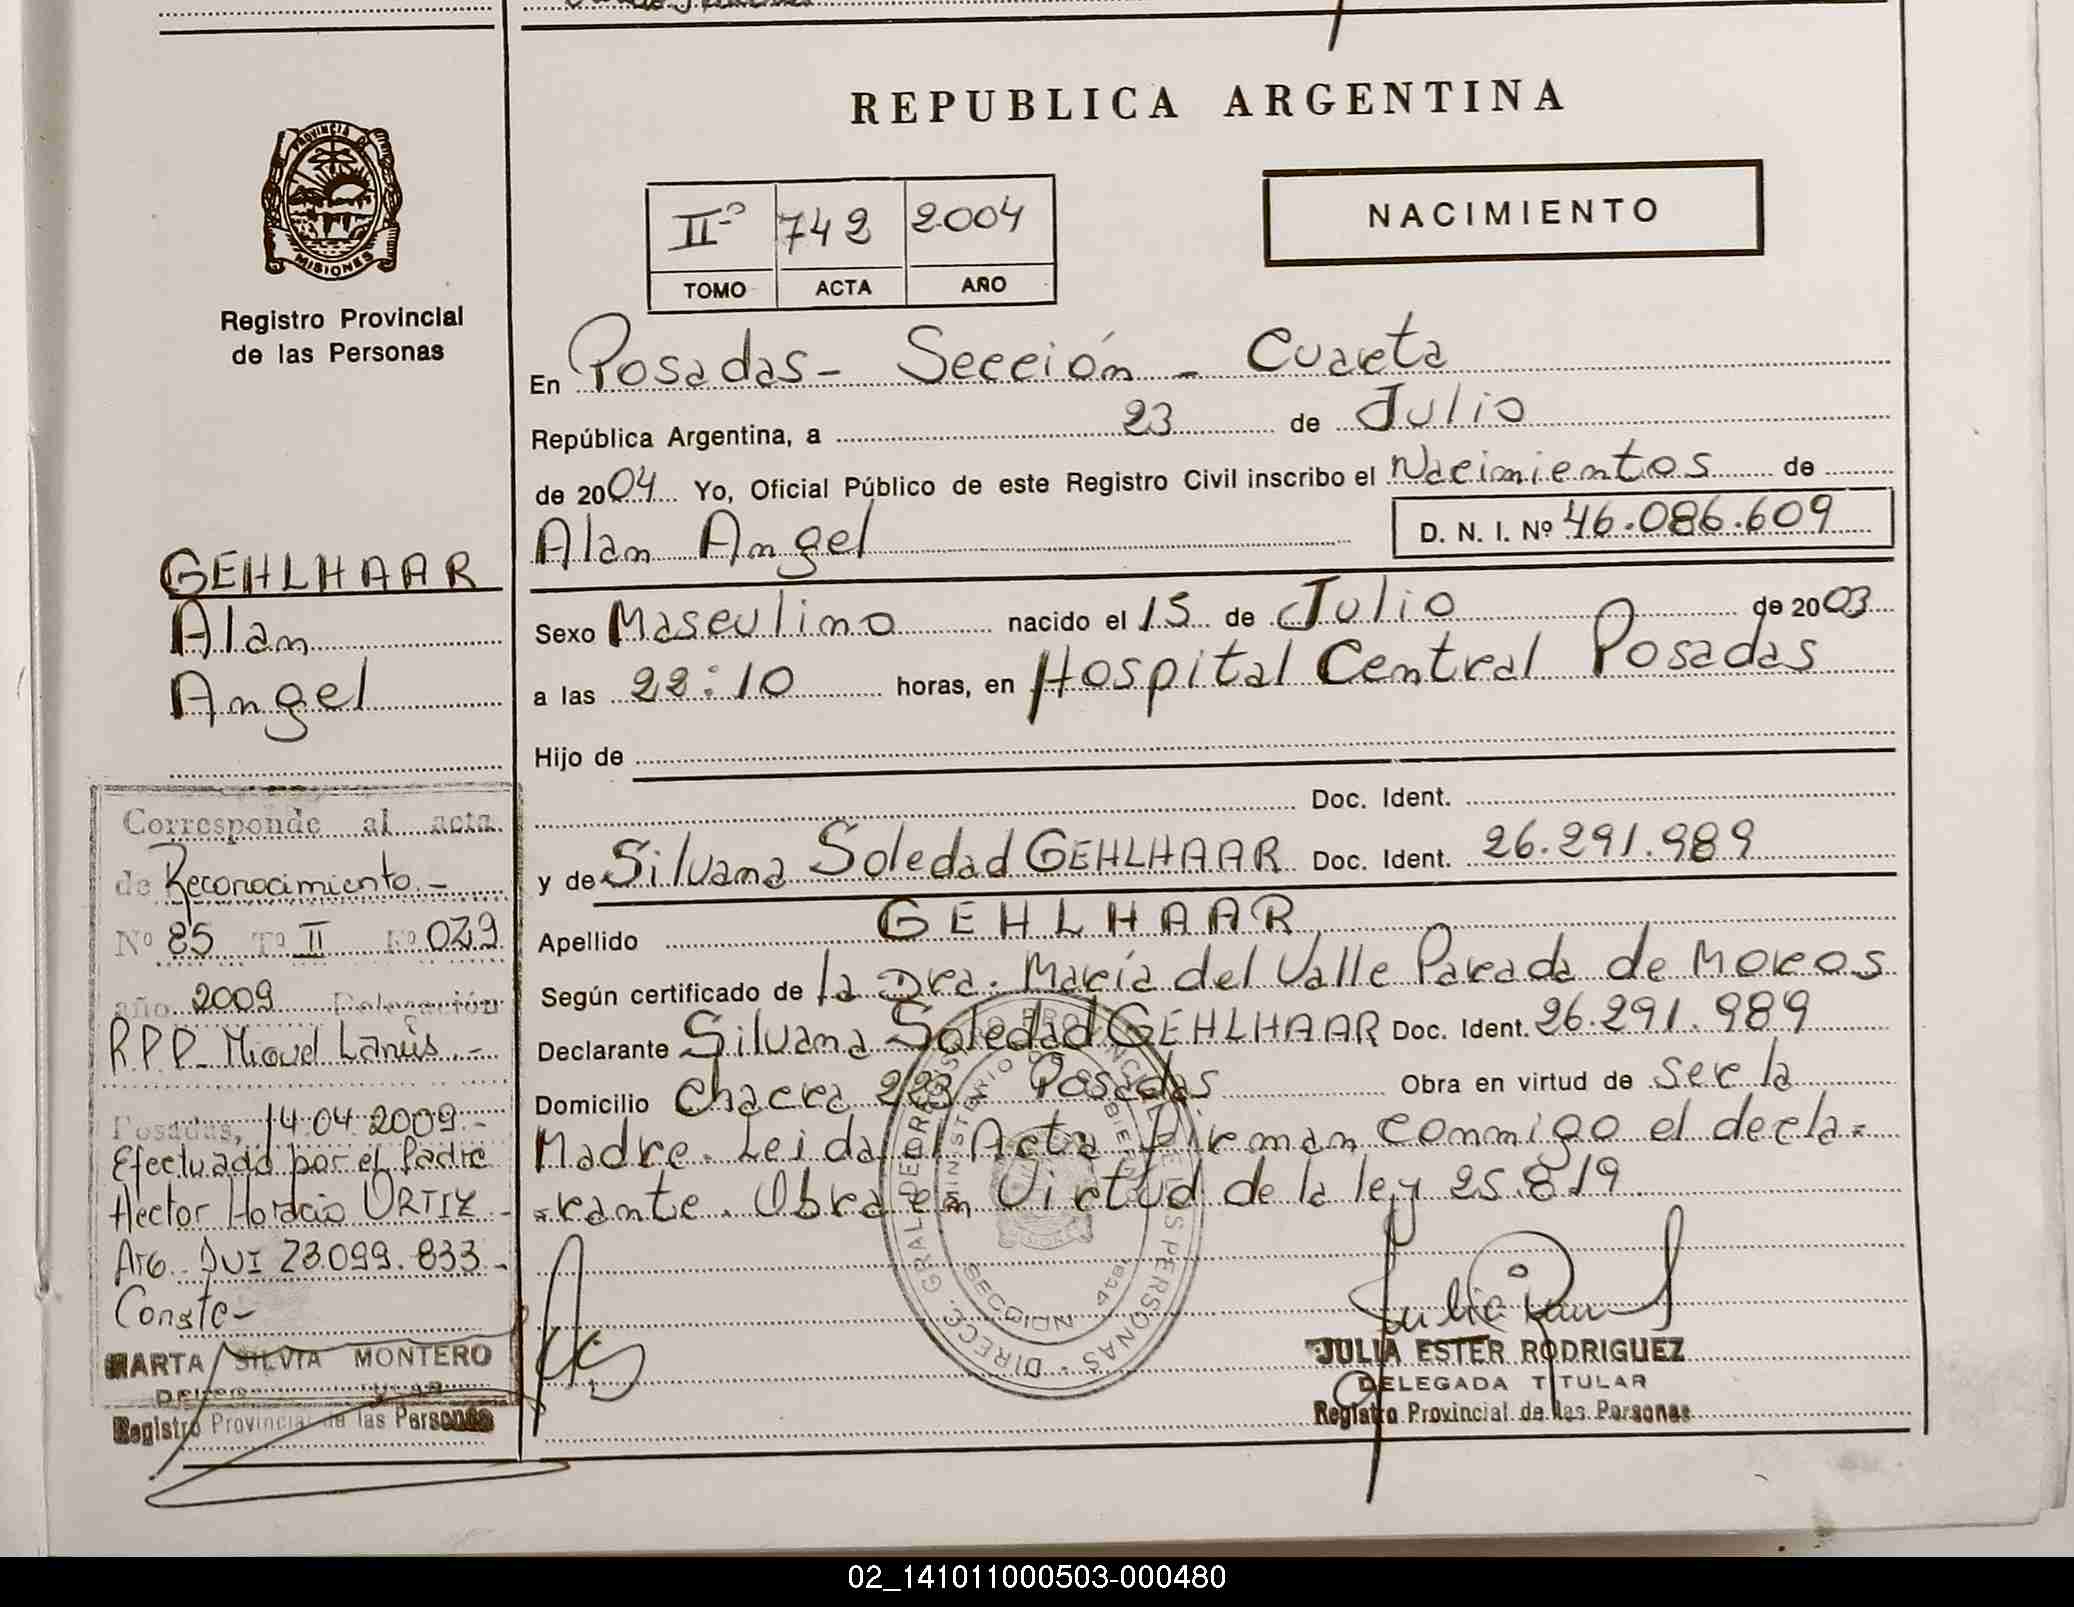 REPUBLICA ARGENTINA
PROVINCIA DE MISIONES
Registro Provincial
de las Personas
IIº 742 2004
TOMO ACTA AÑO
NACIMIENTO
En Posadas - Sección - Cuarta
República Argentina, a 23 de Julio
de 2004 Yo, Oficial Público de este Registro Civil inscribo el Nacimientos de
Alan Angel D. N. I. Nº 46.086.609
Sexo Masculino nacido el 15 de Julio de 2003
a las 22:10 horas, en Hospital Central Posadas
Hijo de
Doc. Ident.
y de Silvana Soledad GEHLHAAR Doc. Ident. 26.291.989
Apellido GEHLHAAR
Según certificado de la Dra. María del Valle Parada de Moros
Declarante Silvana Soledad GEHLHAAR Doc. Ident. 26.291.989
Domicilio Chacra 223 Posadas Obra en virtud de ser la
Madre. Leida el Acta Firman conmigo el decla=
=rante. Obra en Virtud de la ley 25.819
JULIA ESTER RODRIGUEZ
DELEGADA TITULAR
Registro Provincial de las Personas
GEHLHAAR
Alan
Angel
Corresponde al acta
de Reconocimiento.-
Nº 85 Tº II Fº 029
año 2009 Delegación
R.P.P. Miguel Lanús.-
Posadas, 14.04.2009.-
Efectuado por el Padre
Hector Horacio ORTIZ -
Arg. DNI 23.099.833 -
Conste-
MARTA SILVIA MONTERO
Registro Provincial de las Personas
02_141011000503-000480